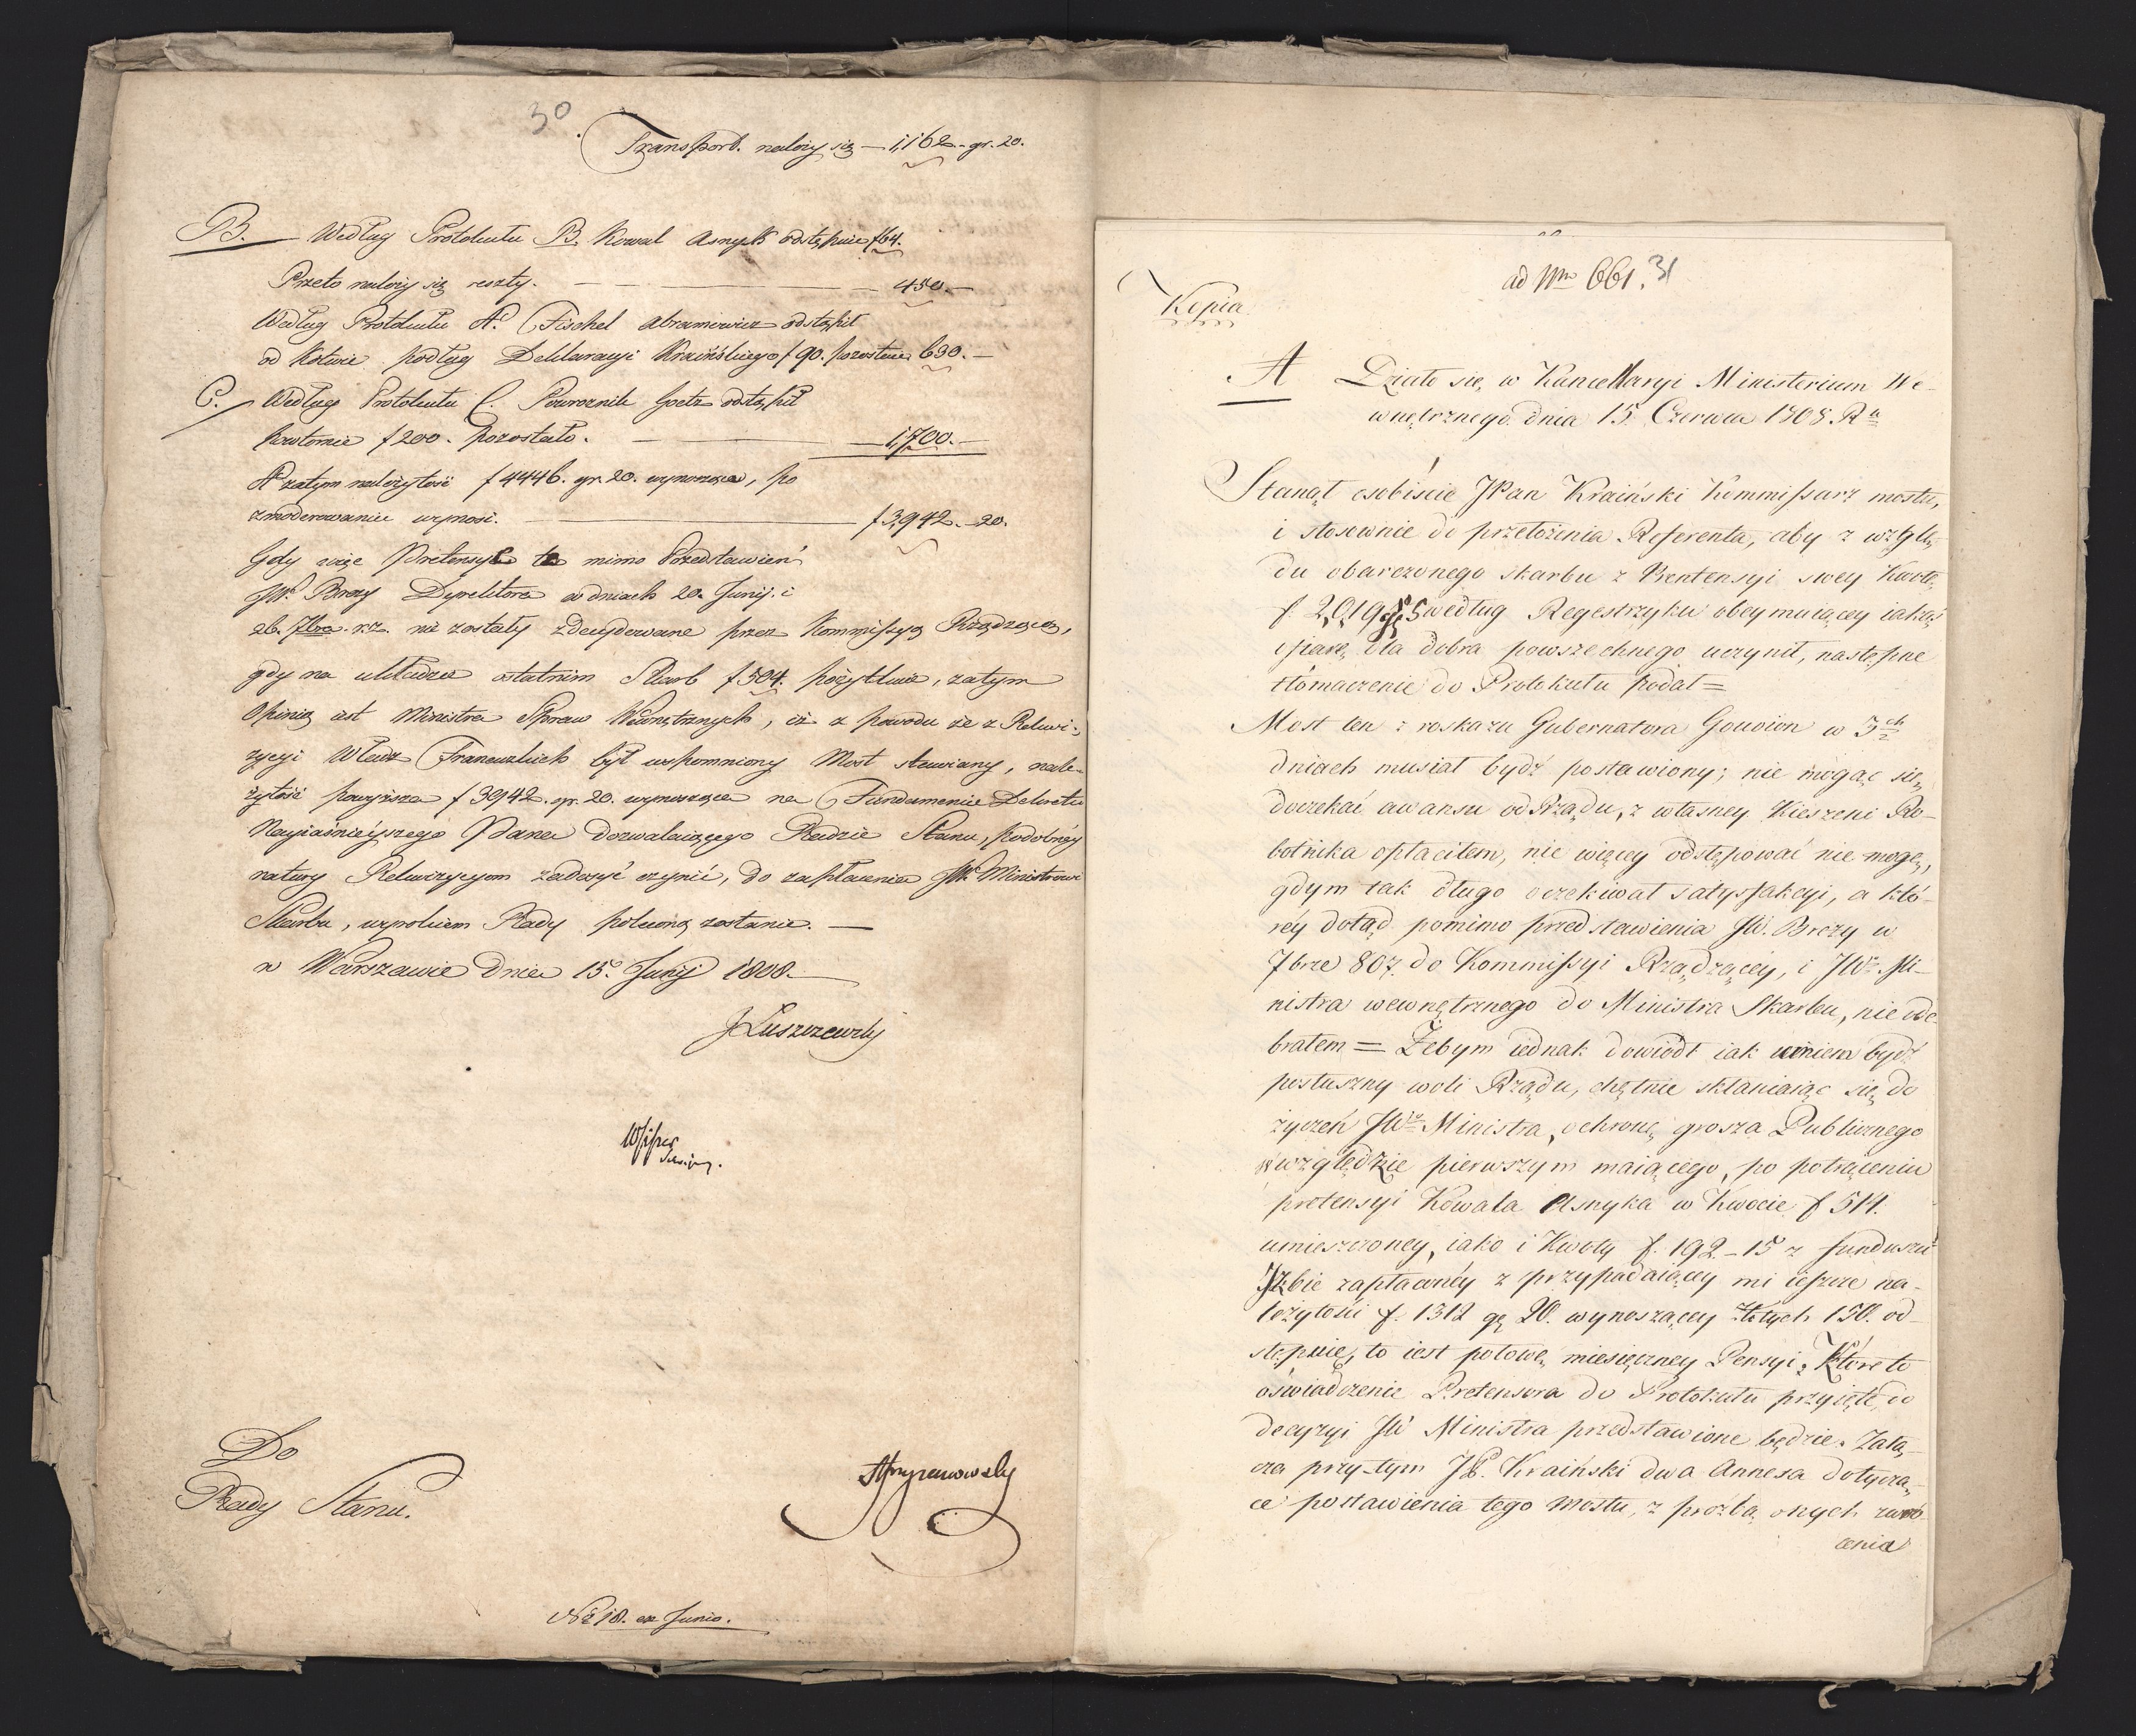 30
Transport. należy się — 1,162 - gr. 20.
B. Według Protokułu B. Kowal Asnyk odstępuie f 64.
Przeto należy się reszty. — 450. —
Według Protokułu A. Fischel Abramowicz odstąpił
od kotwic podług Deklaracyi Kraińskiego f 90. pozostaie 630. —
C. Według Protokułu C. Powroznik Goetz odstąpił
kwotowie f 200. pozostało. — 1,700. —
A zatym należytość f 4446. gr. 20. wynosząca, po
zmoderowaniu wynosi. — f 3,942. — 20.
Gdy więc Pretensye te mimo Przedstawień
JW. Brezy Dyrektora w dniach 20. Junij. i
26. 7bra. r.z. nie zostały zdecydowane przez Kommissyą Rządzącą,
gdy na układzie ostatnim Skarb f 504. pożytkuie, zatym
Opinią iest Ministra Spraw Wewnętrznych, iż z powodu że z Rekwi-
zycyi Władz Francuzkich był wspomniony Most stawiany, nale-
żytość powyższa f 3942. gr. 20. wynosząca na Fundamencie Dekretu
Nayiaśnieyszego Pana dozwalaiącego Radzie Stanu, podobney
natury Rekwizycyom zadosyć czynić, do zapłacenia JW. Ministrowi
Skarbu, wyrokiem Rady poleconą zostanie. —
w Warszawie Dnia 15. Junij 1808. —
JŁuszczewski
Do
Rady Stanu.
Nr 18. ex Junio.
ad Nrm 661. 31
Kopia
A Działo się w Kancellaryi Ministerium We-
wnętrznego dnia 15. Czerwca 1808. Ru
Stanął osobiście JPan Kraiński Kommissarz mostu,
i stosownie do przełożenia Referenta, aby z wzglę-
du obarczonego skarbu z Prentensyi swey kwotę
f. 2,019 według Regestrzyku obeymuiącey iakąś
ofiarę dla dobra powszechnego uczynił, nastepne
tłómaczenie do Protokułu podał =
Most ten z roskazu Gubernatora Gouvion w 3ch
dniach musiał bydź postawiony; nie mogąc się
doczekać awansu od Rządu, z własney kieszeni Ro-
botnika opłaciłem, nic więcey odstępować nie mogę,
gdym tak długo oczekiwał satysfakcyi, a któ-
réy dotąd pomimo przedstawienia JW. Brezy w
7brze 807. do Kommissyi Rządzącéy, i JWo Mi-
nistra wewnętrznego do Ministra Skarbu, nie ode-
brałem = Żebym iednak dowiódł iak umiem bydź
posłuszny woli Rządu, chętnie skłaniaiąc się do
życzeń JWo Ministra, ochronę grosza Publicznego
w względzie pierwszym maiącego, po potrąceniu
pretensyi Kowala Asnyka w kwocie f 514.
umieszczoney, iako i kwoty f. 192 - 15 z funduszu
Izbie zapłaconéy z przypadaiącey mi ieszcze na-
leżytości f. 1312 gr 20. wynoszącey złotych 150. od-
stępuię, to iest połowę miesięczney Pensyi; Które to
oświadczenie Pretensora do Protokułu przyięte, do
decyzyi JW Ministra przedstawione będzie. Załą-
cza przy-tym JP. Kraiński dwa Annexa dotyczą-
ce postawienia tego mostu, z prośbą onych zwró-
cenia